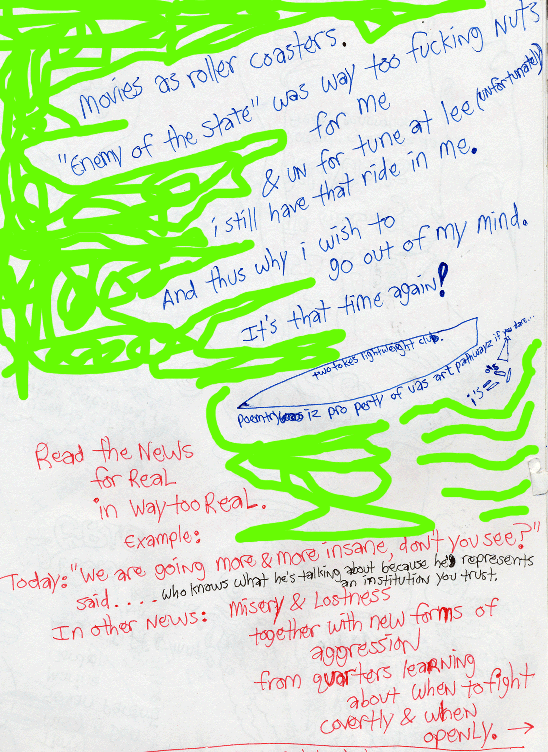 Movies as roller coasters.
"Enemy of the State" was way too fucking nuts
for me
& un for tune at lee (unfortunately)
i still have that ride in me.
And thus why i wish to
go out of my mind.
It's that time again!
two tokes lightweight club.
poemtry iz pro perty of vas art pathwayz if you dare...
Read the News
for Real
in Way too Real.
Example:
Today: "We are going more & more insane, don't you see?"
said.... who knows what he's talking about because he represents
an institution you trust.
In other News: Misery & Lostness
together with new forms of
aggression
from quarters learning
about when to fight
covertly & when
openly. →